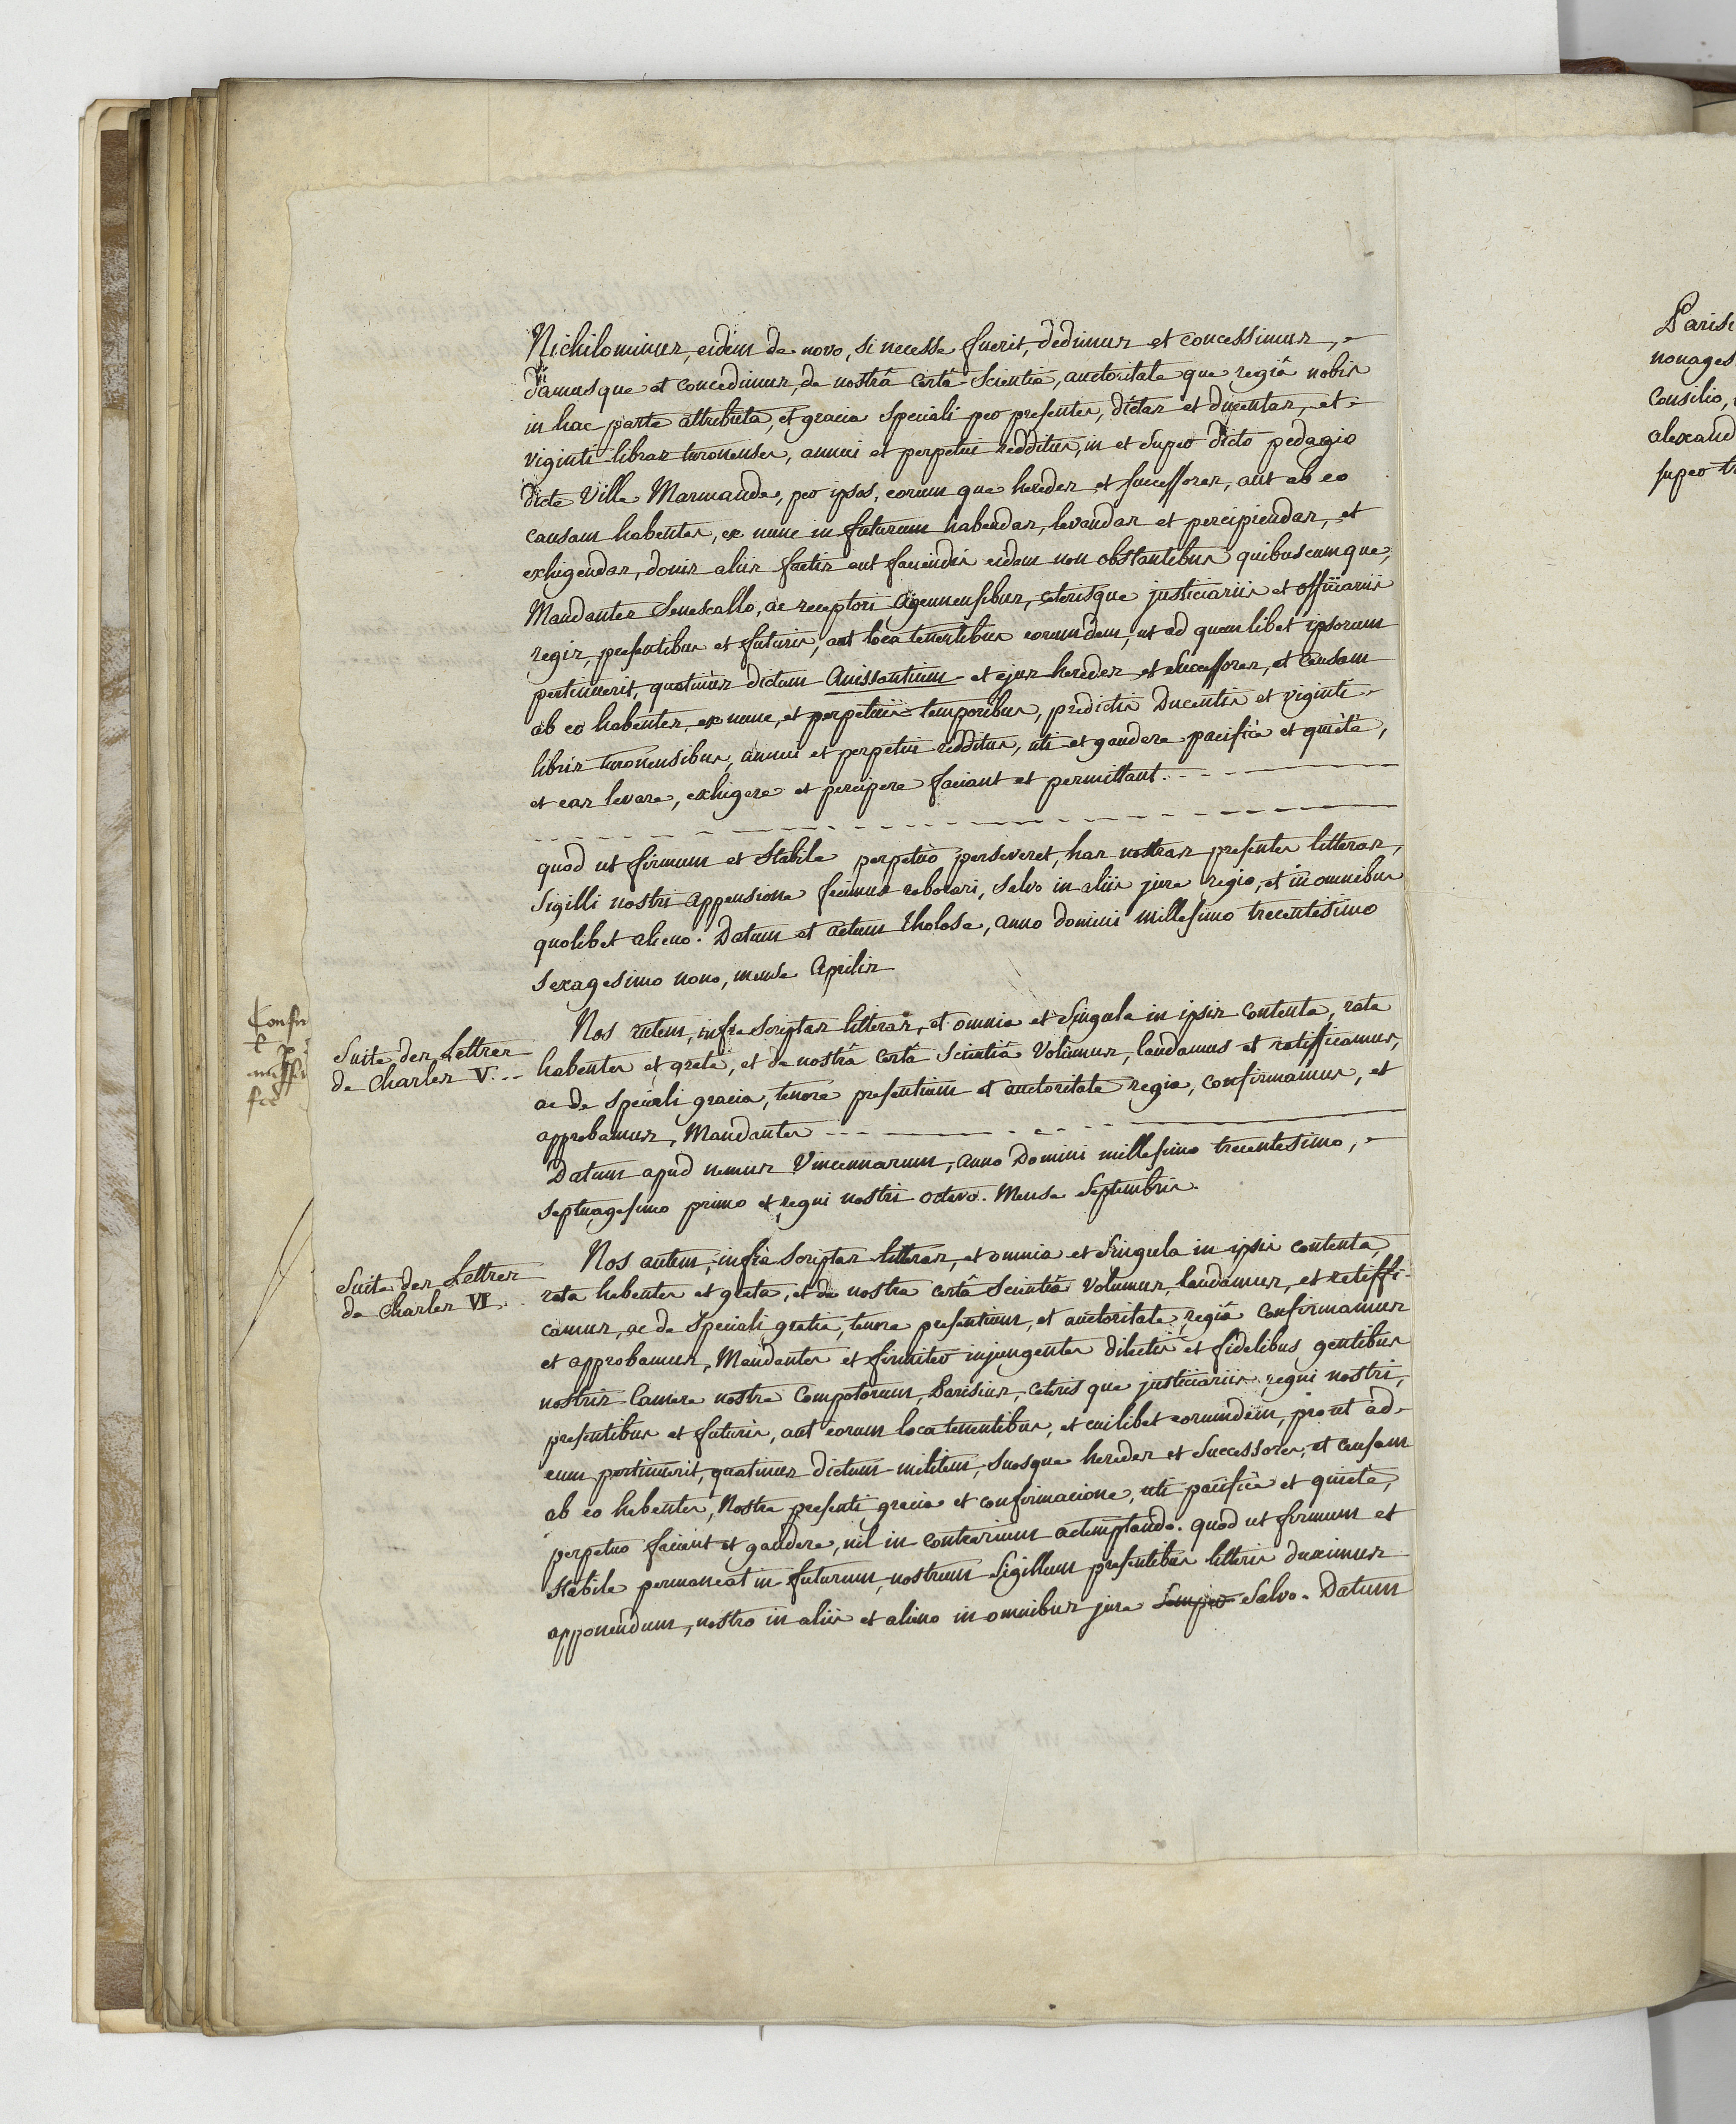 Nichilominus, eidem de novo, si necesse fuerit, dedimus et concessimus,
damusque et concedimus, de nostrâ certâ Scientia, auctoritate que regiâ nobis
in hac parte attributa, et gracia speciali per presentes, dictas et ducentas, et
viginti libras turonenses, annui et perpetui redditus, in et super dicto pedagio
dicte Ville Marmande, per ipsos, eorum que heredes et successores, aut ab eo
causam habentes, ex nunc in futurum habendas, levandas et percipiendas, et
exhigendas, donis aliis factis aut faciendis eidem non obstantibus quibuscumque,
Mandantes Senescallo, ac receptori agennensibus, ceterisque justiciariis et officiariis
regis, presentibus et futuris, aut loca tenentibus eorumdem, ut ad quem libet ipsorum
pertinuerit, quatinùs dictum Anissantium et ejus heredes et Successores, et causam
ab eo habentes, ex nunc, et perpetuis temporibus, predictis Ducentis et viginti
libris turonensibus, annui et perpetui redditus, uti et gaudere pacificè et quiètè,
et eas levare, exhigere et percipere faciant et permittant.
quod ut firmum et Stabile perpetuò perseveret, has nostras presentes litteras,
Sigilli nostri appensione fecimus roborari, Salvo in aliis jure regio, et in omnibus
quolibet alieno. Datum et actum tholose, anno domini millesimo trecentesimo
sexagesimo nono, mense Aprilis
Suite des Lettres
de Charles V.
Nos autem, infra Scriptas litteras, et omnia et Singula in ipsis contenta, rata
habentes et grata, et de nostrâ certâ Scientiâ Volumus, laudamus et ratifficamus,
ac de speciali gracia, tenore presentium et auctoritate regia, confirmamus, et
approbamus, Mandantes
Datum apud nemus Vincennarum, anno Domini millesimo trecentesimo,
septuagesimo primo et regni nostri octavo. Mense Septembris.
Suite des Lettres
de Charles VI.
Nos autem, infrà Scriptas litteras, et omnia et Singula in ipsis contenta,
rata habentes et grata, et de nostra certâ Scientiâ volumus, laudamus, et ratiffi-
camus, ac de Speciali gratia, tenore presentium, et auctoritate regiâ confirmamus
et approbamus, Mandantes et firmiter injungentes dilectis et fidelibus gentibus
nostris Camere nostre Compotorum, Parisius, ceteris que justiciariis regni nostri,
presentibus et futuris, aut eorum loca tenentibus, et cuilibet eorumdem, prout ad
eum pertinuerit, quatinus dictum militem, Suosque heredes et Successores, et causam
ab eo habentes, Nostra presenti gracia et confirmacione, uti pacificè et quietè,
perpetuo faciant et gaudere, nil in contrarium actemptando. quod ut firmum et
stabile permaneat in futurum, nostrum Sigillum presentibus litteris duximus
apponendum, nostro in aliis et alieno in omnibus jure Semper Salvo. Datum